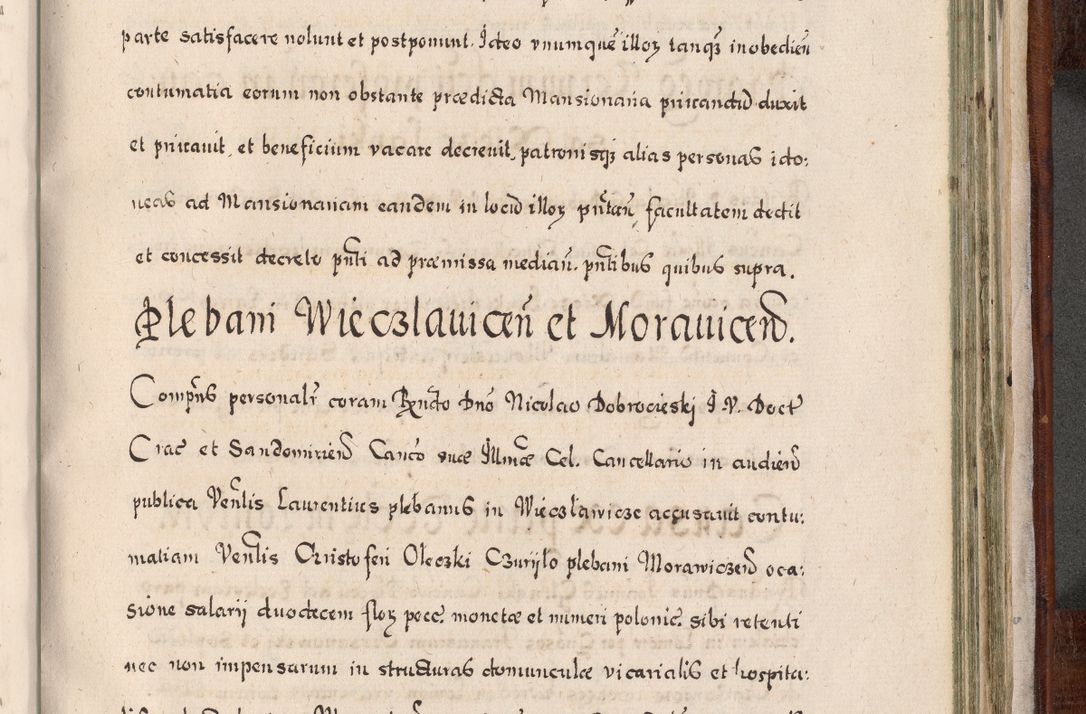 parte satisfacere nolunt et postponunt. Ideo vnumquē illoꝝ tanqꝫ inobedieñ
contumatia eorum non obstante prædicta Mansionaria priuandū duxit
et priuauit, et beneficium vacare decreuit, patronisqꝫ alias personas ido:
neas ad Mansionariam eandem in locū illoꝝ pn̄tan̄ facultatem dedit
et concessit decreto pn̄ti ad præmissa median̄. pn̄tibus quibus supra.
Plebani Wieczlauiceñ et Morauiceñ.
Compn̄s personalr̄ coram Rn̄do Dn̄o Nicolao Dobrocieski I. V. Doct
Crac et Sandomirieñ Canco suæ Illmæ Cel. Cancellario in audieñ
publica Ven̄lis Laurentius plebanus in Wieczlawicze accusauit contu:
matiam Ven̄lis Cristoferi Oleczki Czuryło plebani Morawiczeñ oca:
sione salarij duodecem floꝝ pecc. monetæ et numeri polonic. sibi retenti
nec non impensarum in structuras domunculæ vicarialis et hospita: